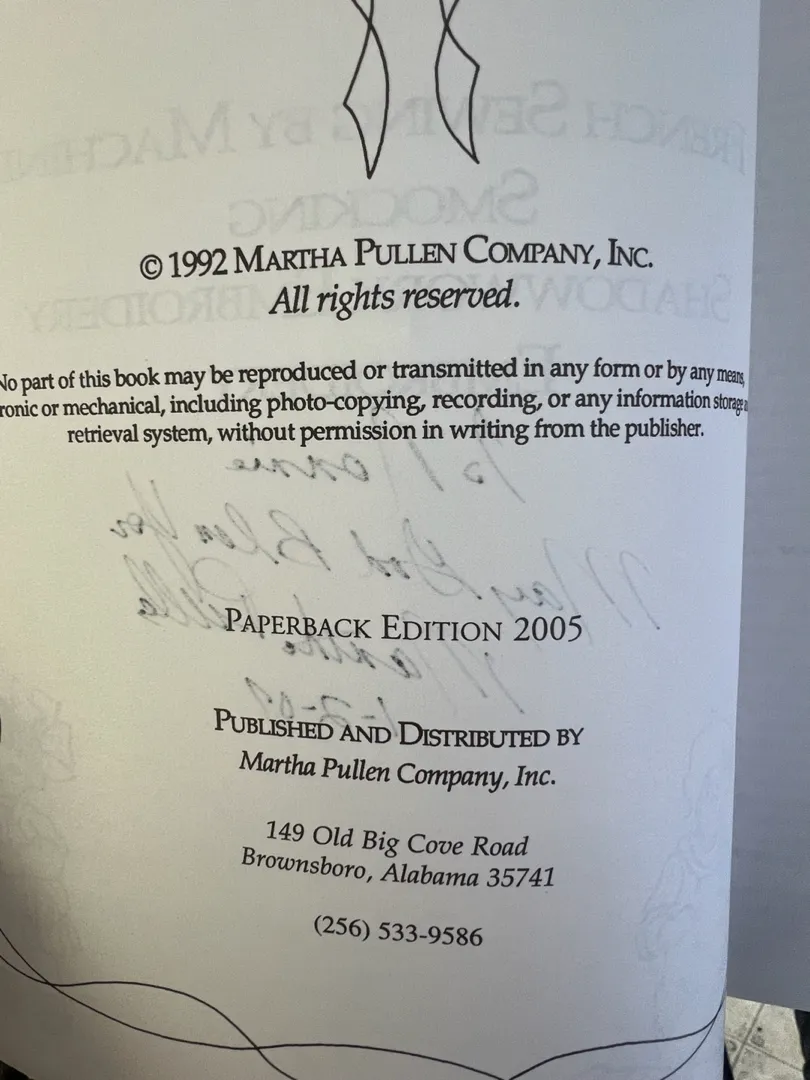 © 1992 MARTHA PULLEN COMPANY, INC.
All rights reserved.
No part of this book may be reproduced or transmitted in any form or by any means,
ronic or mechanical, including photo-copying, recording, or any information storage
retrieval system, without permission in writing from the publisher.
PAPERBACK EDITION 2005
PUBLISHED AND DISTRIBUTED BY
Martha Pullen Company, Inc.
149 Old Big Cove Road
Brownsboro, Alabama 35741
(256) 533-9586